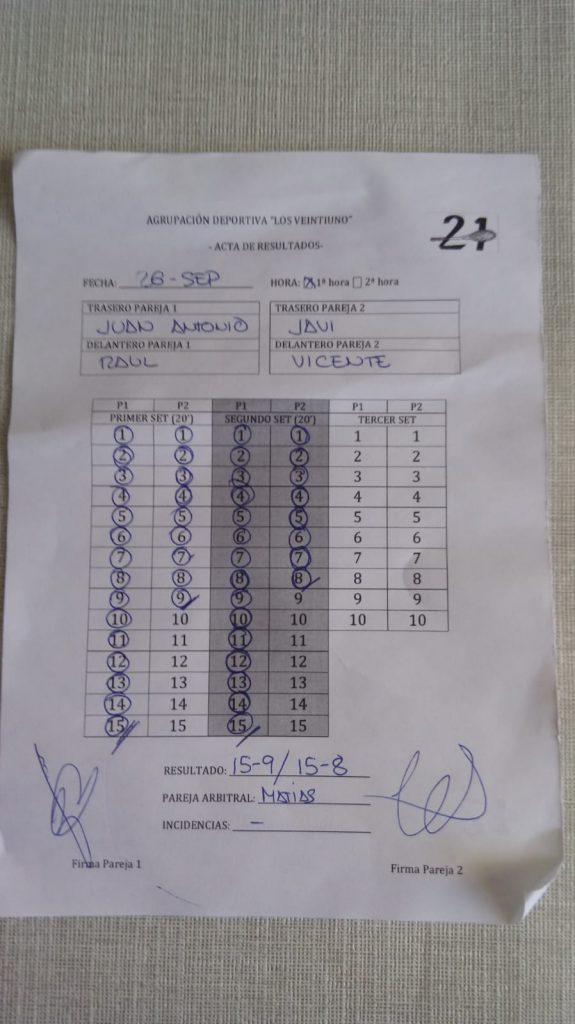 AGRUPACIÓN DEPORTIVA "LOS VEINTIUNO"
- ACTA DE RESULTADOS-
21
FECHA: 26-SEP HORA: 1ª hora 2ª hora
TRASERO PAREJA 1 TRASERO PAREJA 2
JUAN ANTONIO JAVI
DELANTERO PAREJA 1 DELANTERO PAREJA 2
RAUL VICENTE
P1 P2 P1 P2 P1 P2
PRIMER SET (20') SEGUNDO SET (20') TERCER SET
1 1 1 1 1 1
2 2 2 2 2 2
3 3 3 3 3 3
4 4 4 4 4 4
5 5 5 5 5 5
6 6 6 6 6 6
7 7 7 7 7 7
8 8 8 8 8 8
9 9 9 9 9 9
10 10 10 10 10 10
11 11 11 11
12 12 12 12
13 13 13 13
14 14 14 14
15 15 15 15
RESULTADO: 15-9/15-8
PAREJA ARBITRAL: MATIAS
INCIDENCIAS: -
Firma Pareja 1 Firma Pareja 2